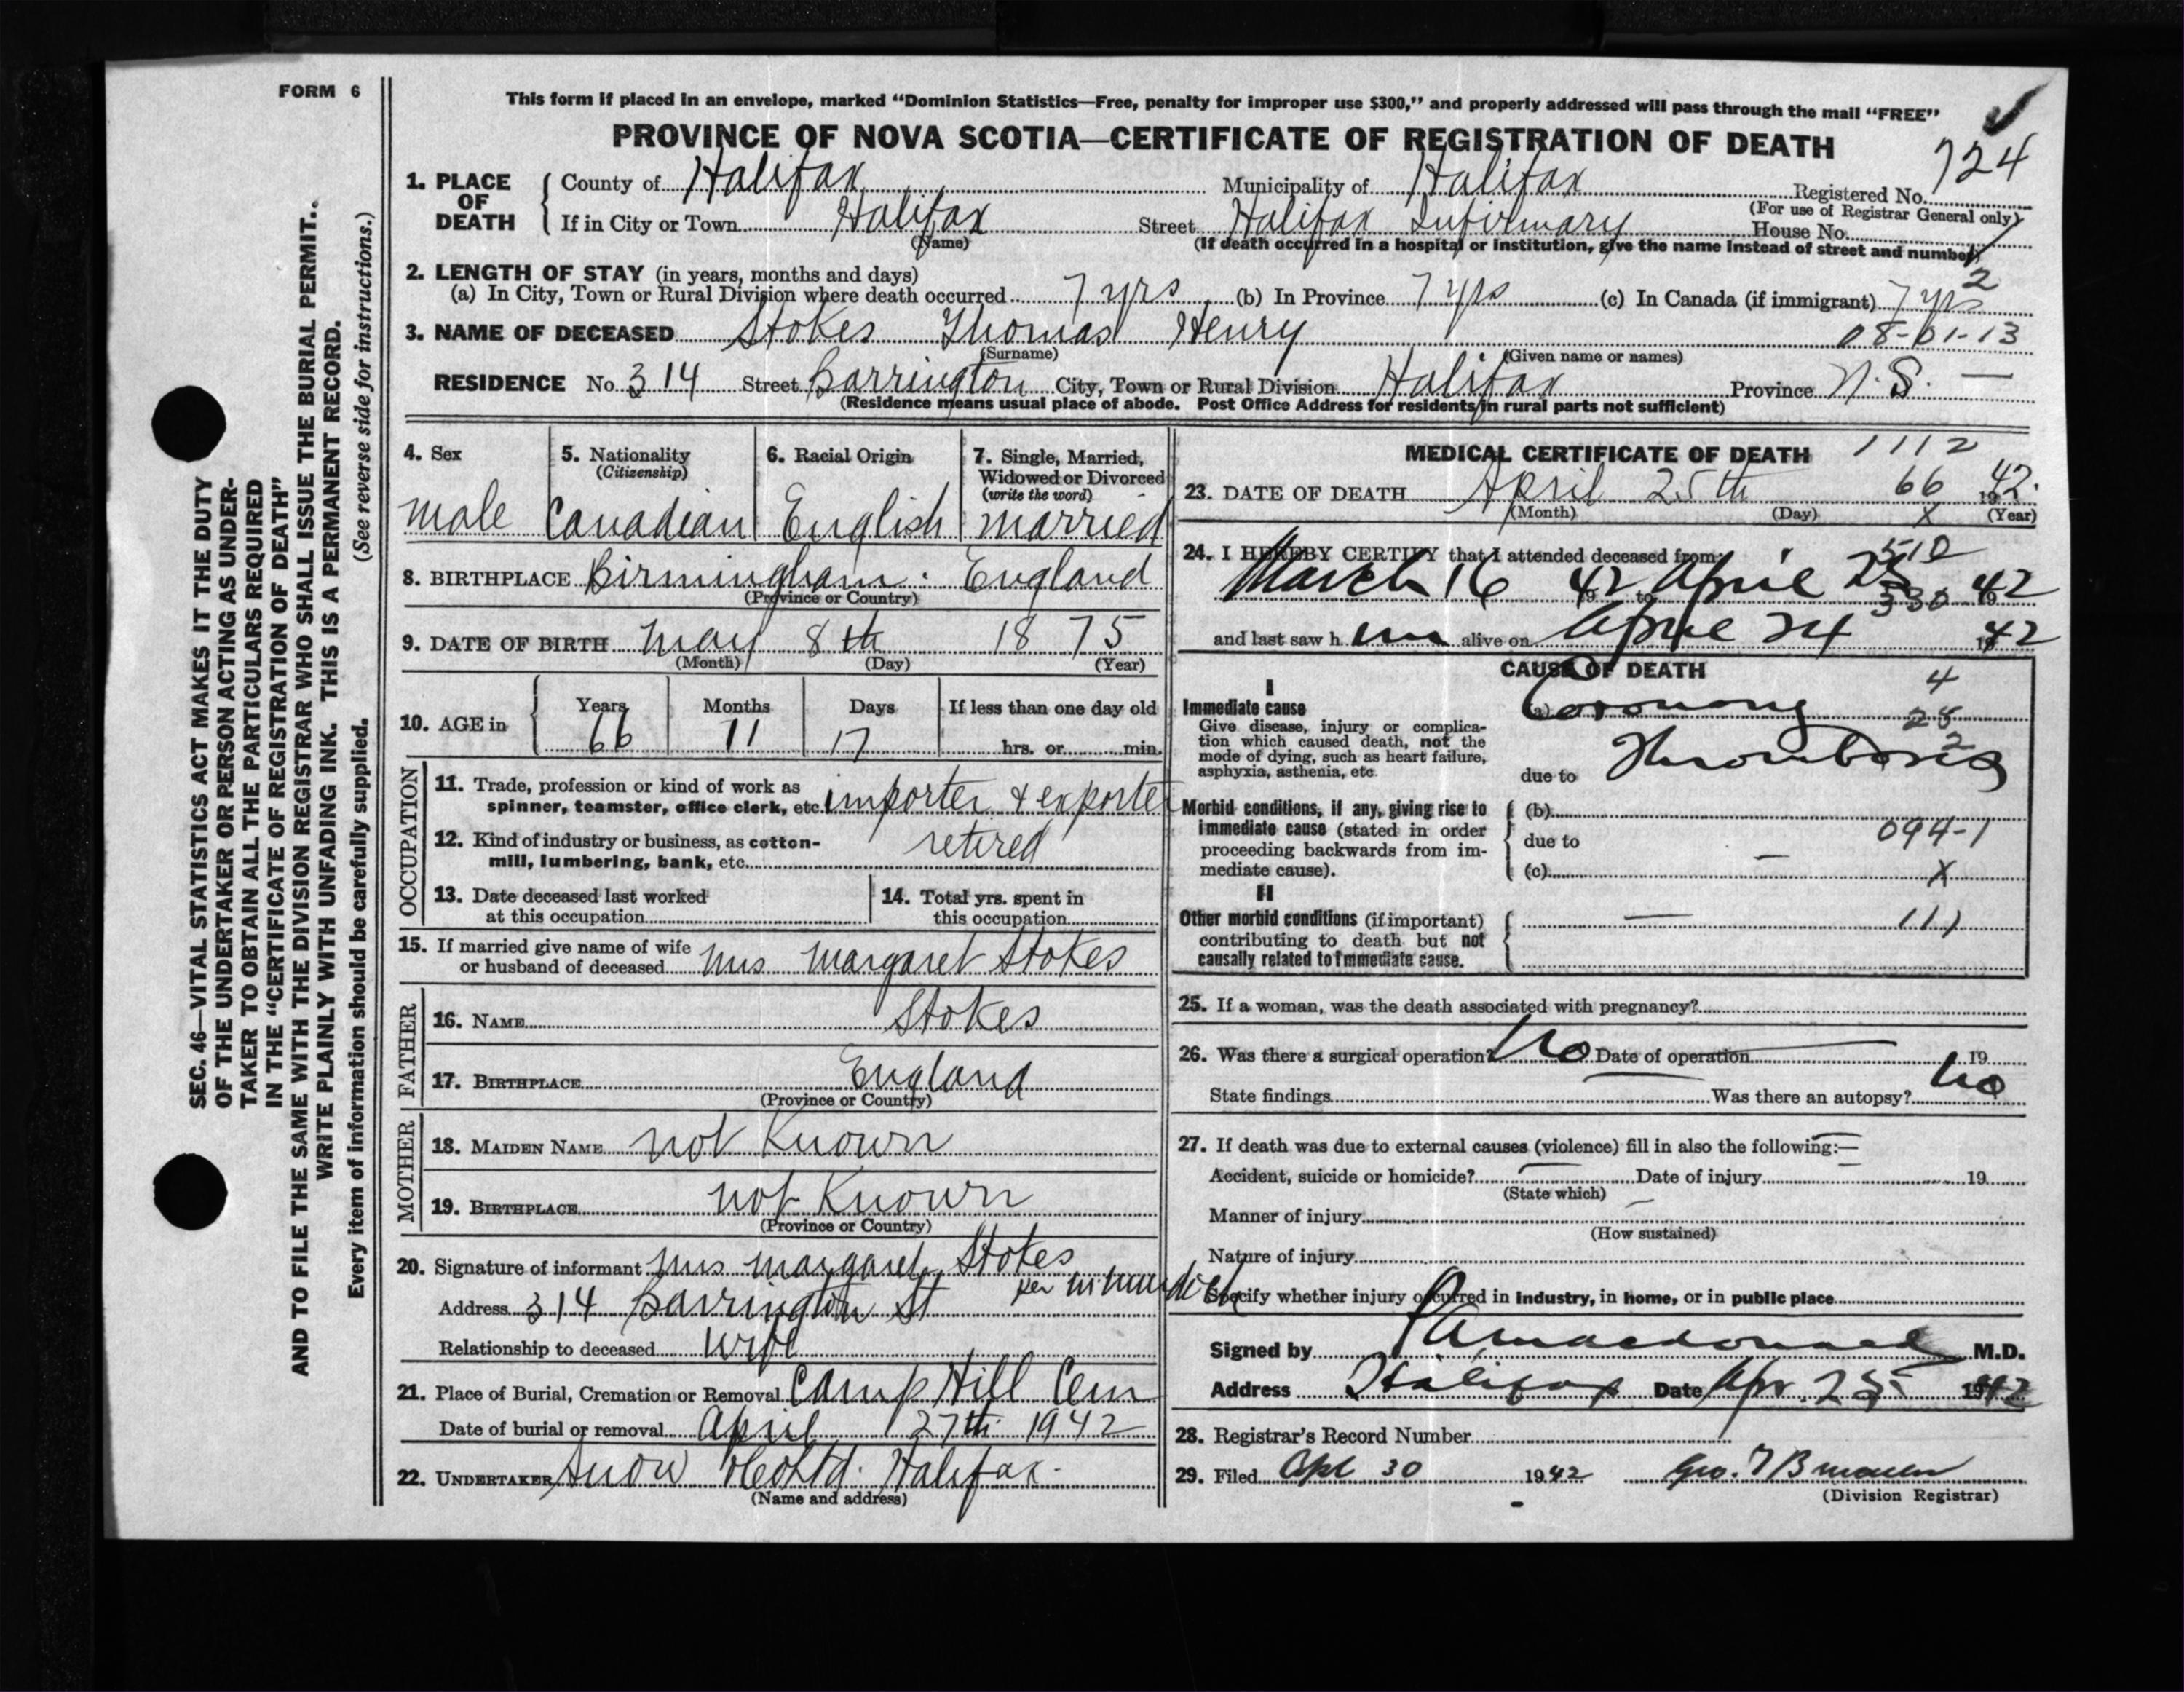 FORM 6
This form if placed in an envelope, marked “Dominion Statistics—Free, penalty for improper use $300,” and properly addressed will pass through the mail “FREE”
PROVINCE OF NOVA SCOTIA—CERTIFICATE OF REGISTRATION OF DEATH
724
1. PLACE OF DEATH { County of Halifax Municipality of Halifax Registered No.
(For use of Registrar General only)
If in City or Town Halifax Street Halifax Infirmary House No.
(Name) (If death occurred in a hospital or institution, give the name instead of street and number)
2
2. LENGTH OF STAY (in years, months and days)
(a) In City, Town or Rural Division where death occurred 7 yrs (b) In Province 7 yrs (c) In Canada (if immigrant) 7 yrs
3. NAME OF DECEASED Stokes Thomas Henry 08-01-13
(Surname) (Given name or names)
RESIDENCE No. 314 Street Barrington City, Town or Rural Division Halifax Province N.S. —
(Residence means usual place of abode. Post Office Address for residents in rural parts not sufficient)
4. Sex
male
5. Nationality
(Citizenship)
Canadian
6. Racial Origin
English
7. Single, Married,
Widowed or Divorced
(write the word)
married
8. BIRTHPLACE Birmingham. England
(Province or Country)
9. DATE OF BIRTH May 8th 1875
(Month) (Day) (Year)
10. AGE in { Years Months Days If less than one day old
66 11 17 hrs. or min.
OCCUPATION
11. Trade, profession or kind of work as
spinner, teamster, office clerk, etc. importer & exporter
12. Kind of industry or business, as cotton-
mill, lumbering, bank, etc. retired
13. Date deceased last worked
at this occupation
14. Total yrs. spent in
this occupation
15. If married give name of wife
or husband of deceased Mrs Margaret Stokes
FATHER
16. NAME Stokes
17. BIRTHPLACE England
(Province or Country)
MOTHER
18. MAIDEN NAME not Known
19. BIRTHPLACE not Known
(Province or Country)
20. Signature of informant Mrs Margaret Stokes
per
Address 314 Barrington St
Relationship to deceased wife
21. Place of Burial, Cremation or Removal Camp Hill Cem
Date of burial or removal April 27th 1942
22. UNDERTAKER Snow & Co Ltd. Halifax.
(Name and address)
MEDICAL CERTIFICATE OF DEATH 1112
23. DATE OF DEATH April 25th 66 1942.
(Month) (Day) X (Year)
24. I HEREBY CERTIFY that I attended deceased from: 510
March 16 1942 to April 25 330 1942
and last saw h im alive on April 24 1942
CAUSE OF DEATH
I
Immediate cause
Give disease, injury or complica-
tion which caused death, not the
mode of dying, such as heart failure,
asphyxia, asthenia, etc.
4
(a) Coronary 28
2
due to Thrombosis
Morbid conditions, if any, giving rise to
immediate cause (stated in order
proceeding backwards from im-
mediate cause).
(b)
due to 094-1
(c) X
II
Other morbid conditions (if important)
contributing to death but not
causally related to immediate cause.
— 111
25. If a woman, was the death associated with pregnancy?
26. Was there a surgical operation? No Date of operation 19
State findings Was there an autopsy? No
27. If death was due to external causes (violence) fill in also the following:—
Accident, suicide or homicide? Date of injury 19
(State which)
Manner of injury
(How sustained)
Nature of injury
Specify whether injury occurred in industry, in home, or in public place
Signed by Macdonald M.D.
Address Halifax Date Apr. 25 1942
28. Registrar's Record Number
29. Filed Apl 30 1942 Geo.
(Division Registrar)
SEC. 46—VITAL STATISTICS ACT MAKES IT THE DUTY
OF THE UNDERTAKER OR PERSON ACTING AS UNDER-
TAKER TO OBTAIN ALL THE PARTICULARS REQUIRED
IN THE “CERTIFICATE OF REGISTRATION OF DEATH”
AND TO FILE THE SAME WITH THE DIVISION REGISTRAR WHO SHALL ISSUE THE BURIAL PERMIT.
WRITE PLAINLY WITH UNFADING INK. THIS IS A PERMANENT RECORD.
Every item of information should be carefully supplied. (See reverse side for instructions.)